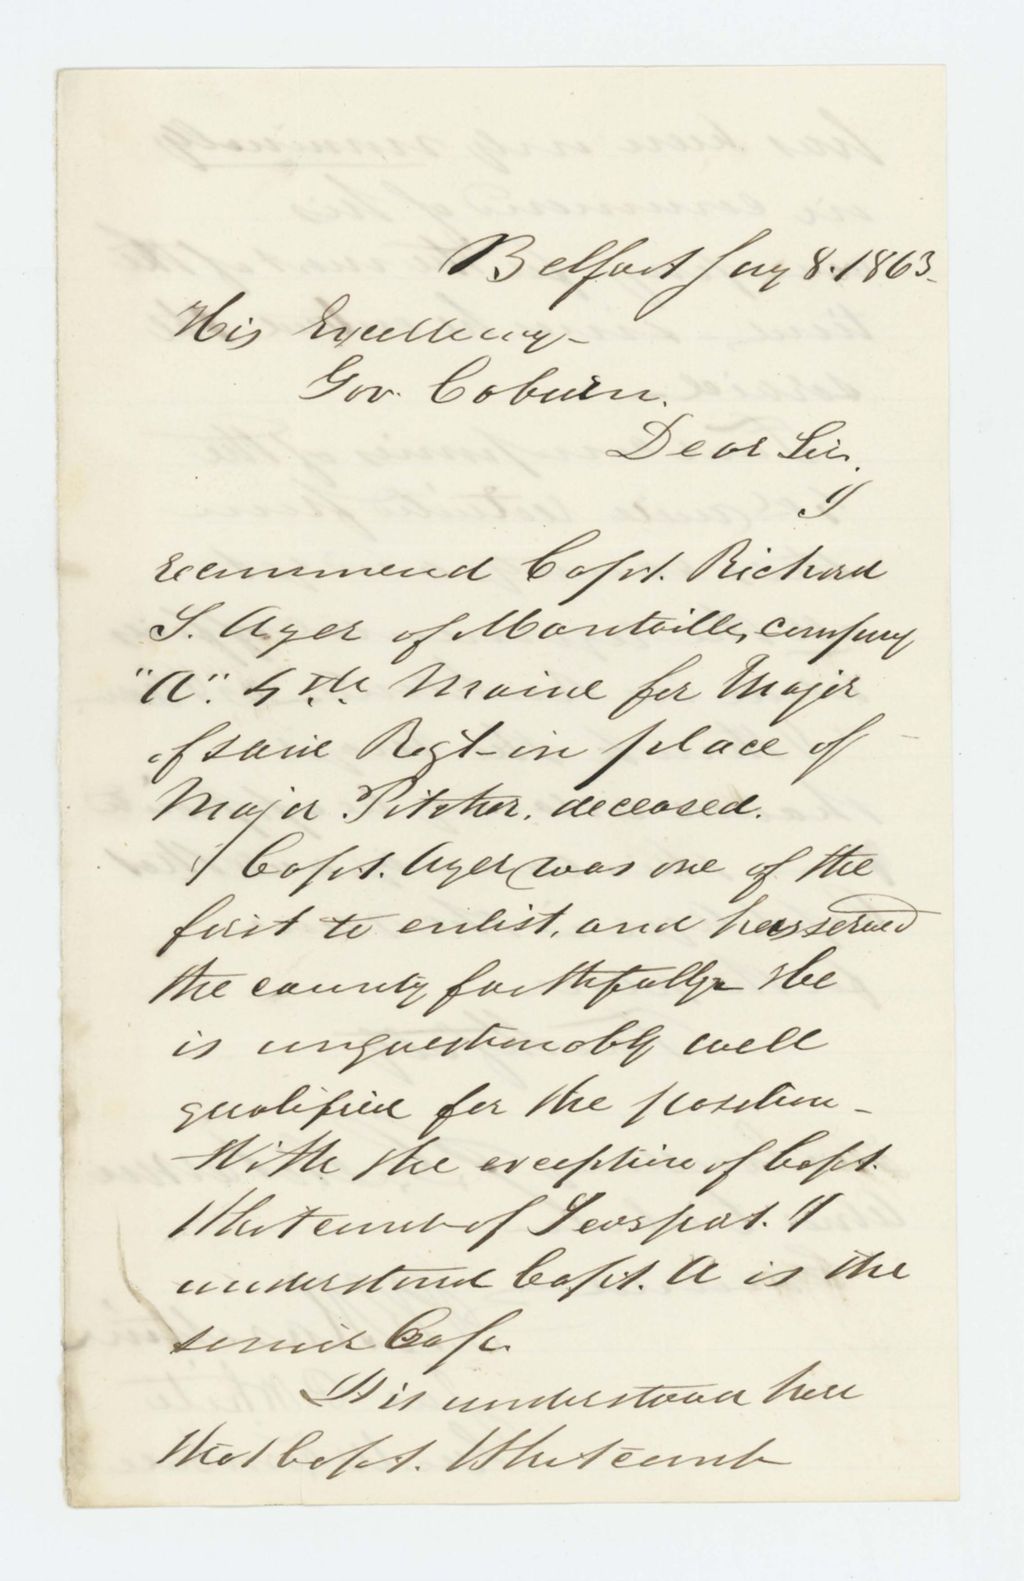 Belfast Jany 8. 1863.
His Excellency-
Gov. Coburn.
Dear Sir.
I
recommend Capt. Richard
S. Ayer of Montville, company
"A". 4th. Maine for Major
of said Regt- in place of
Major Pitcher. deceased.
Capt. Ayer was one of the
first to enlist, and has served
the country faithfully- He
is unquestionably well
qualified for the position-
With the exception of Capt.
Whitcomb of Searsport. I
understand Capt. A is the
senior Cap.
It is understood here
that Capt. Whitcomb